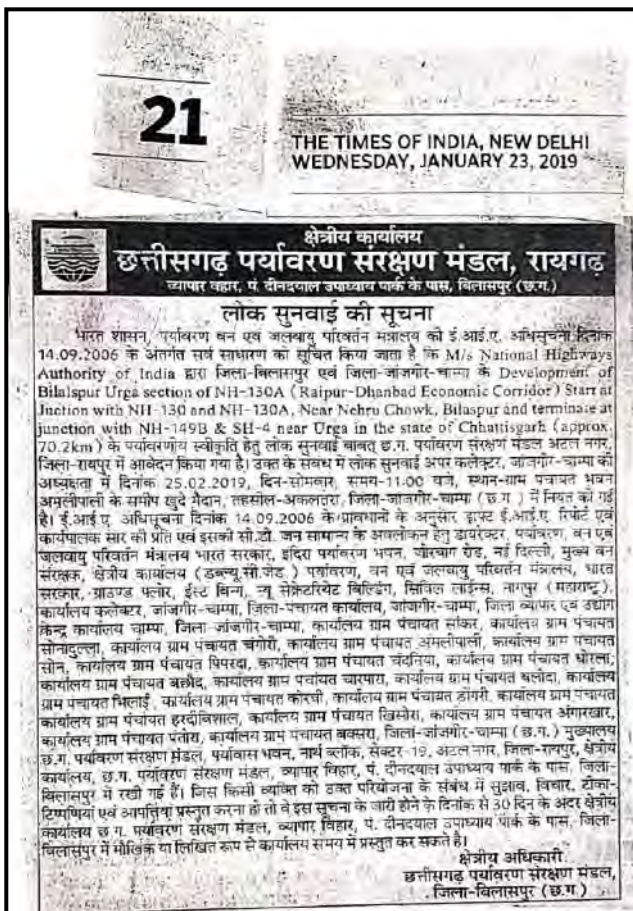 21
THE TIMES OF INDIA, NEW DELHI
WEDNESDAY, JANUARY 23, 2019
क्षेत्रीय कार्यालय
छत्तीसगढ़ पर्यावरण संरक्षण मंडल, रायगढ़
व्यापार विहार, पं. दीनदयाल उपाध्याय पार्क के पास, बिलासपुर (छ.ग.)
लोक सुनवाई की सूचना
भारत शासन, पर्यावरण वन एवं जलवायु परिवर्तन मंत्रालय की ई.आई.ए. अधिसूचना दिनांक
14.09.2006 के अंतर्गत सर्व साधारण को सूचित किया जाता है कि M/s National Highways
Authority of India द्वारा जिला-बिलासपुर एवं जिला-जांजगीर-चाम्पा के Development of
Bilalspur Urga section of NH-130A (Raipur-Dhanbad Economic Corridor) Start at
Juction with NH-130 and NH-130A, Near Nehru Chowk, Bilaspur and terminate at
junction with NH-149B & SH-4 near Urga in the state of Chhattisgarh (approx.
70.2km) के पर्यावरणीय स्वीकृति हेतु लोक सुनवाई बाबत् छ.ग. पर्यावरण संरक्षण मंडल अटल नगर,
जिला-रायपुर में आवेदन किया गया है। उक्त के संबंध में लोक सुनवाई अपर कलेक्टर, जांजगीर-चाम्पा की
अध्यक्षता में दिनांक 25.02.2019, दिन-सोमवार, समय-11:00 बजे, स्थान-ग्राम पंचायत भवन
अमलीपाली के समीप खुदे मैदान, तहसील-अकलतरा, जिला-जांजगीर-चाम्पा (छ.ग.) में नियत की गई
है। ई.आई.ए. अधिसूचना दिनांक 14.09.2006 के प्रावधानों के अनुसार ड्राफ्ट ई.आई.ए. रिपोर्ट एवं
कार्यपालक सार की प्रति एवं इसकी सी.डी. जन सामान्य के अवलोकन हेतु डायरेक्टर, पर्यावरण, वन एवं
जलवायु परिवर्तन मंत्रालय भारत सरकार, इंदिरा पर्यावरण भवन, जोरबाग रोड, नई दिल्ली, मुख्य वन
संरक्षक, क्षेत्रीय कार्यालय (डब्ल्यू.सी.जेड) पर्यावरण, वन एवं जलवायु परिवर्तन मंत्रालय, भारत
सरकार, ग्राउण्ड फ्लोर, ईस्ट विन्ग, न्यू सेक्रेटरियेट बिल्डिंग, सिविल लाईन्स, नागपुर (महाराष्ट्र),
कार्यालय कलेक्टर, जांजगीर-चाम्पा, जिला-पंचायत कार्यालय, जांजगीर-चाम्पा, जिला व्यापार एवं उद्योग
केन्द्र कार्यालय चाम्पा, जिला-जांजगीर-चाम्पा, कार्यालय ग्राम पंचायत सांकर, कार्यालय ग्राम पंचायत
सोनादुल्ला, कार्यालय ग्राम पंचायत चंगोरी, कार्यालय ग्राम पंचायत अमलीपाली, कार्यालय ग्राम पंचायत
सोन, कार्यालय ग्राम पंचायत पिपरदा, कार्यालय ग्राम पंचायत चंदनिया, कार्यालय ग्राम पंचायत
कार्यालय ग्राम पंचायत कार्यालय ग्राम पंचायत चारपारा, कार्यालय ग्राम पंचायत बलौदा, कार्यालय
ग्राम पंचायत भिलाई, कार्यालय ग्राम पंचायत कोरबी, कार्यालय ग्राम पंचायत डोंगरी, कार्यालय ग्राम पंचायत
कार्यालय ग्राम पंचायत हरदीविशाल, कार्यालय ग्राम पंचायत खिसोरा, कार्यालय ग्राम पंचायत अंगारखार,
कार्यालय ग्राम पंचायत पंतोरा, कार्यालय ग्राम पंचायत बक्सरा, जिला-जांजगीर-चाम्पा (छ.ग.) मुख्यालय
छ.ग. पर्यावरण संरक्षण मंडल, पर्यावास भवन, नार्थ ब्लॉक, सेक्टर-19, अटल नगर, जिला-रायपुर, क्षेत्रीय
कार्यालय, छ.ग. पर्यावरण संरक्षण मंडल, व्यापार विहार, पं. दीनदयाल उपाध्याय पार्क के पास, जिला-
बिलासपुर में रखी गई हैं। जिस किसी व्यक्ति को उक्त परियोजना के संबंध में सुझाव, विचार, टीका-
टिप्पणियां एवं आपत्तियां प्रस्तुत करना हो तो वे इस सूचना के जारी होने के दिनांक से 30 दिन के अंदर क्षेत्रीय
कार्यालय छ.ग. पर्यावरण संरक्षण मंडल, व्यापार विहार, पं. दीनदयाल उपाध्याय पार्क के पास, जिला-
बिलासपुर में मौखिक या लिखित रूप से कार्यालय समय में प्रस्तुत कर सकते हैं।
क्षेत्रीय अधिकारी
छत्तीसगढ़ पर्यावरण संरक्षण मंडल,
जिला-बिलासपुर (छ.ग.)